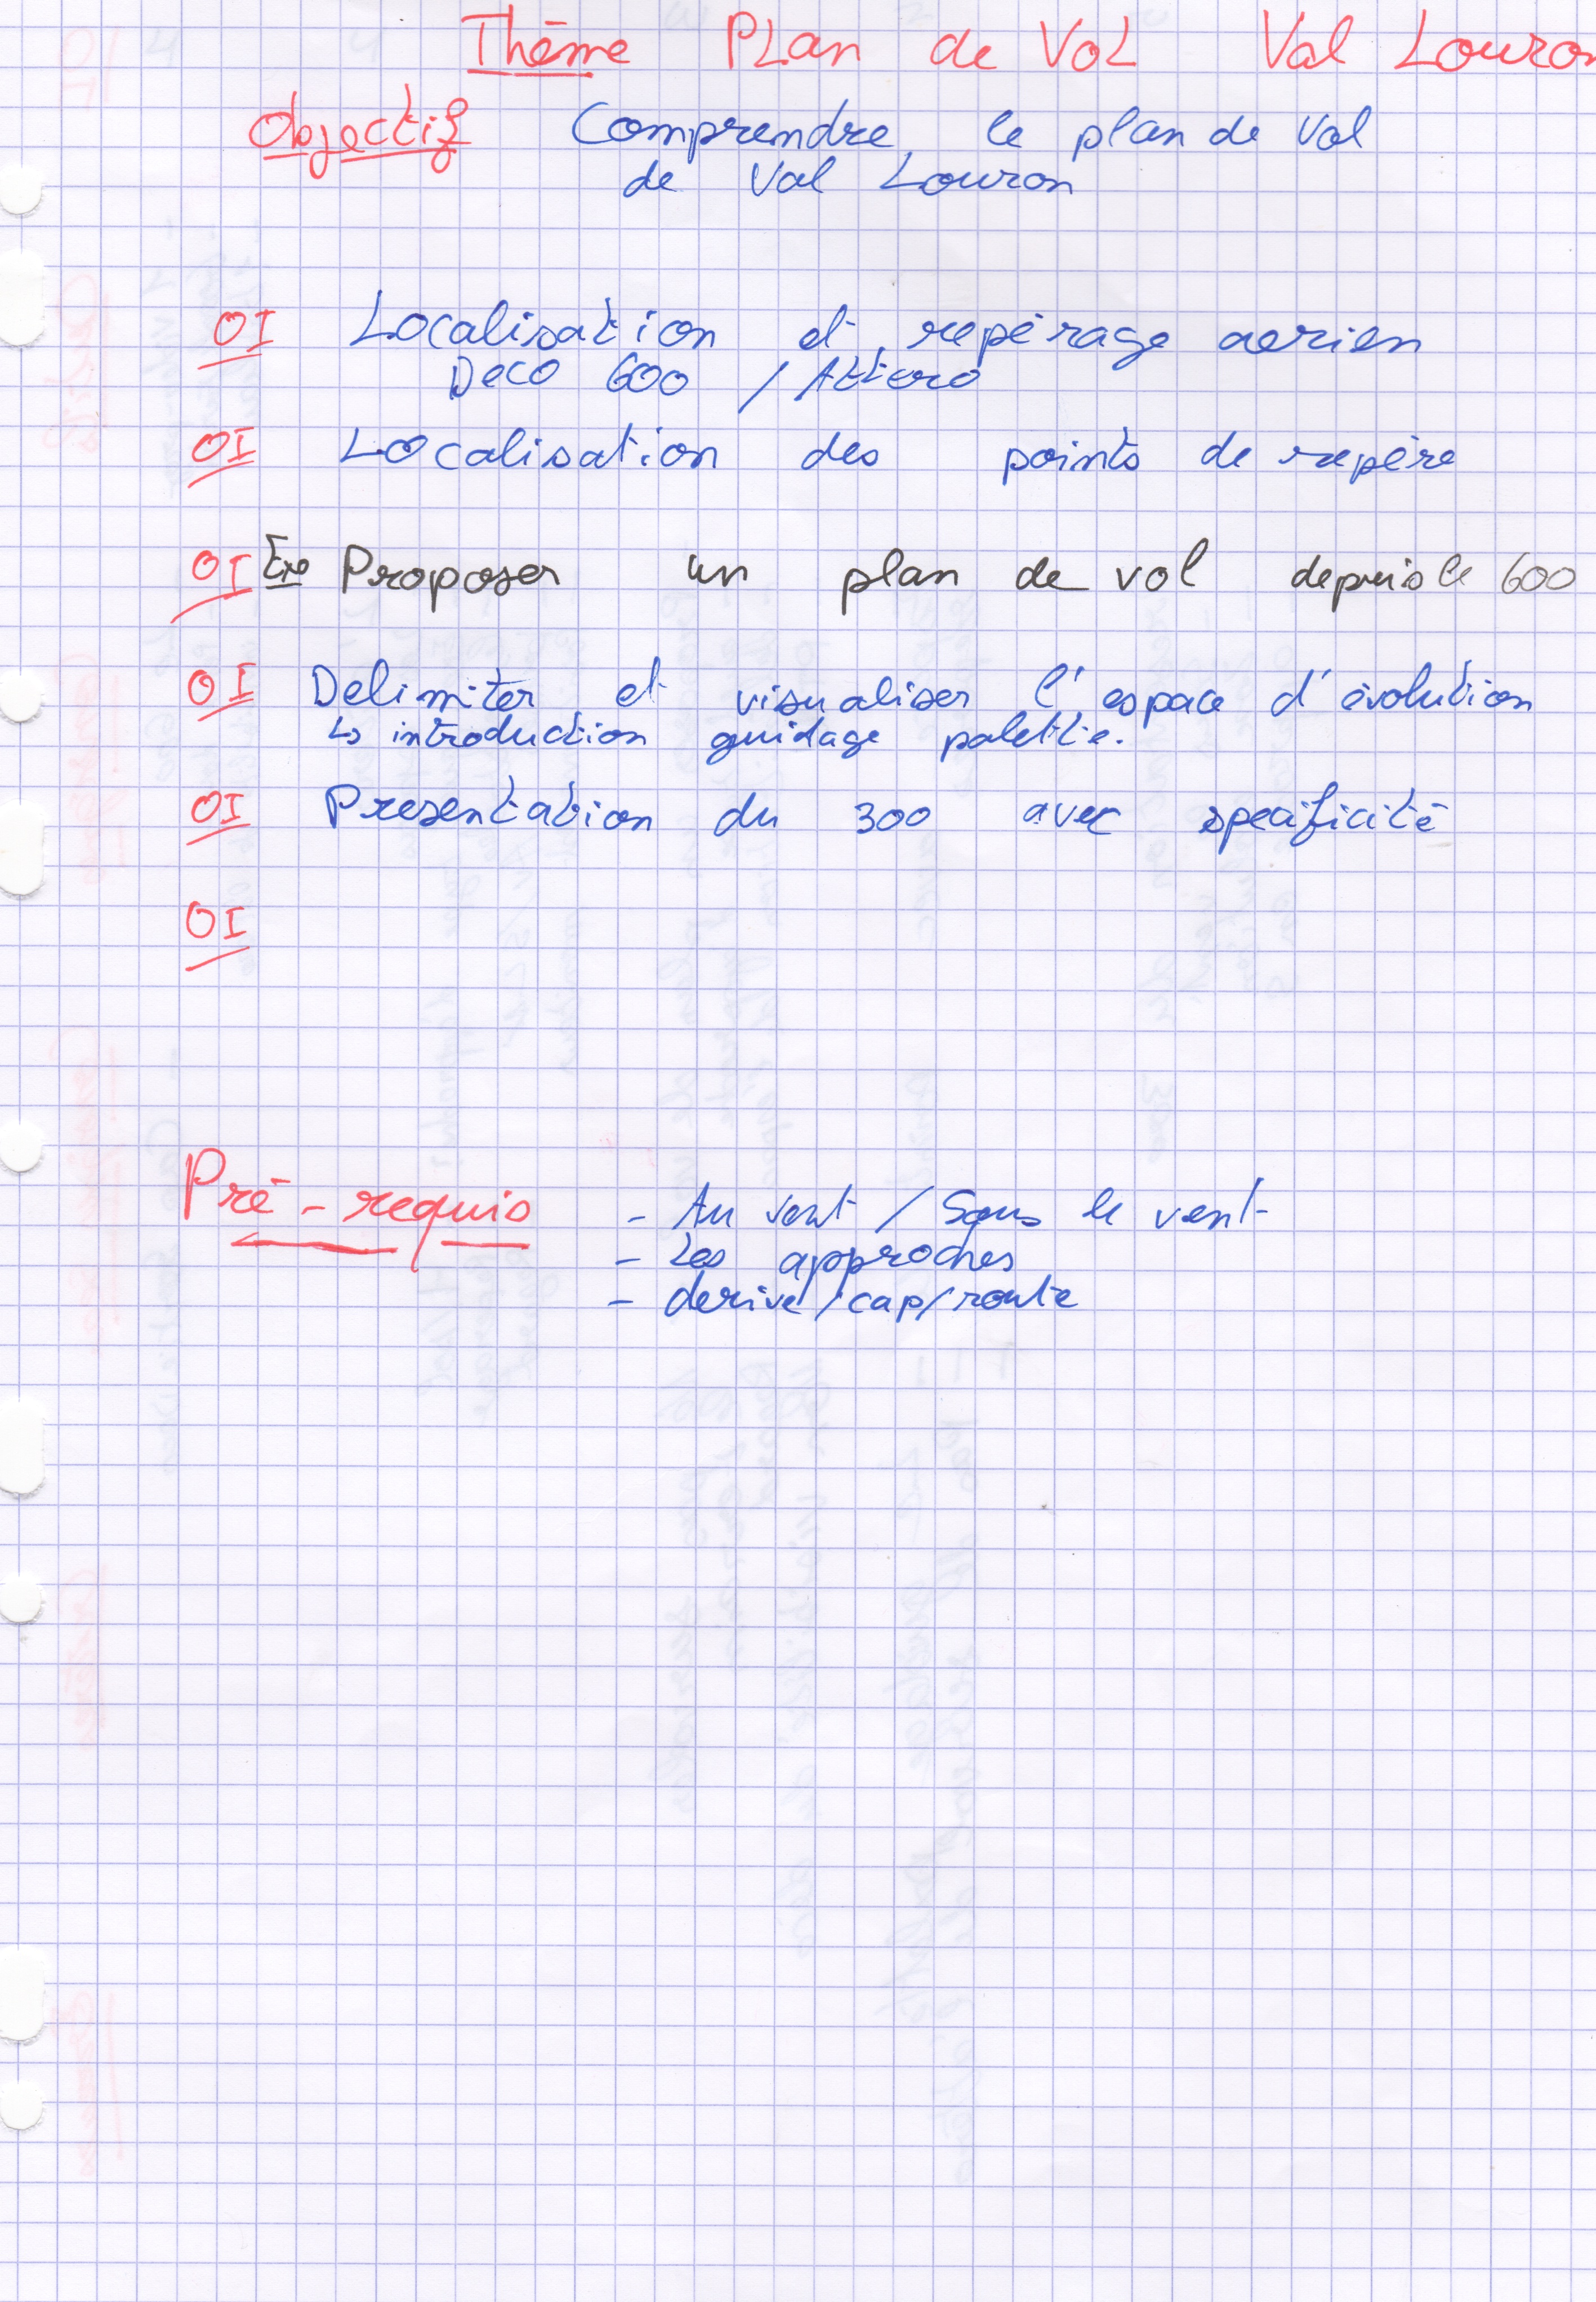 Thème PLan de VoL Val Louron
Objectif Comprendre le plan de Vol
de Val Louron
OI Localisation et repérage aerien
Deco 600 / Attero
OI LOcalisation des points de repère
OI Exo Proposer un plan de vol depuis le 600
OI Delimiter et visualiser l'espace d'évolution
↳ introduction guidage palette.
OI Presentation du 300 avec specificité
OI
Pré-requis - Au vent / Sous le vent
- Les approches
- derive/cap/route